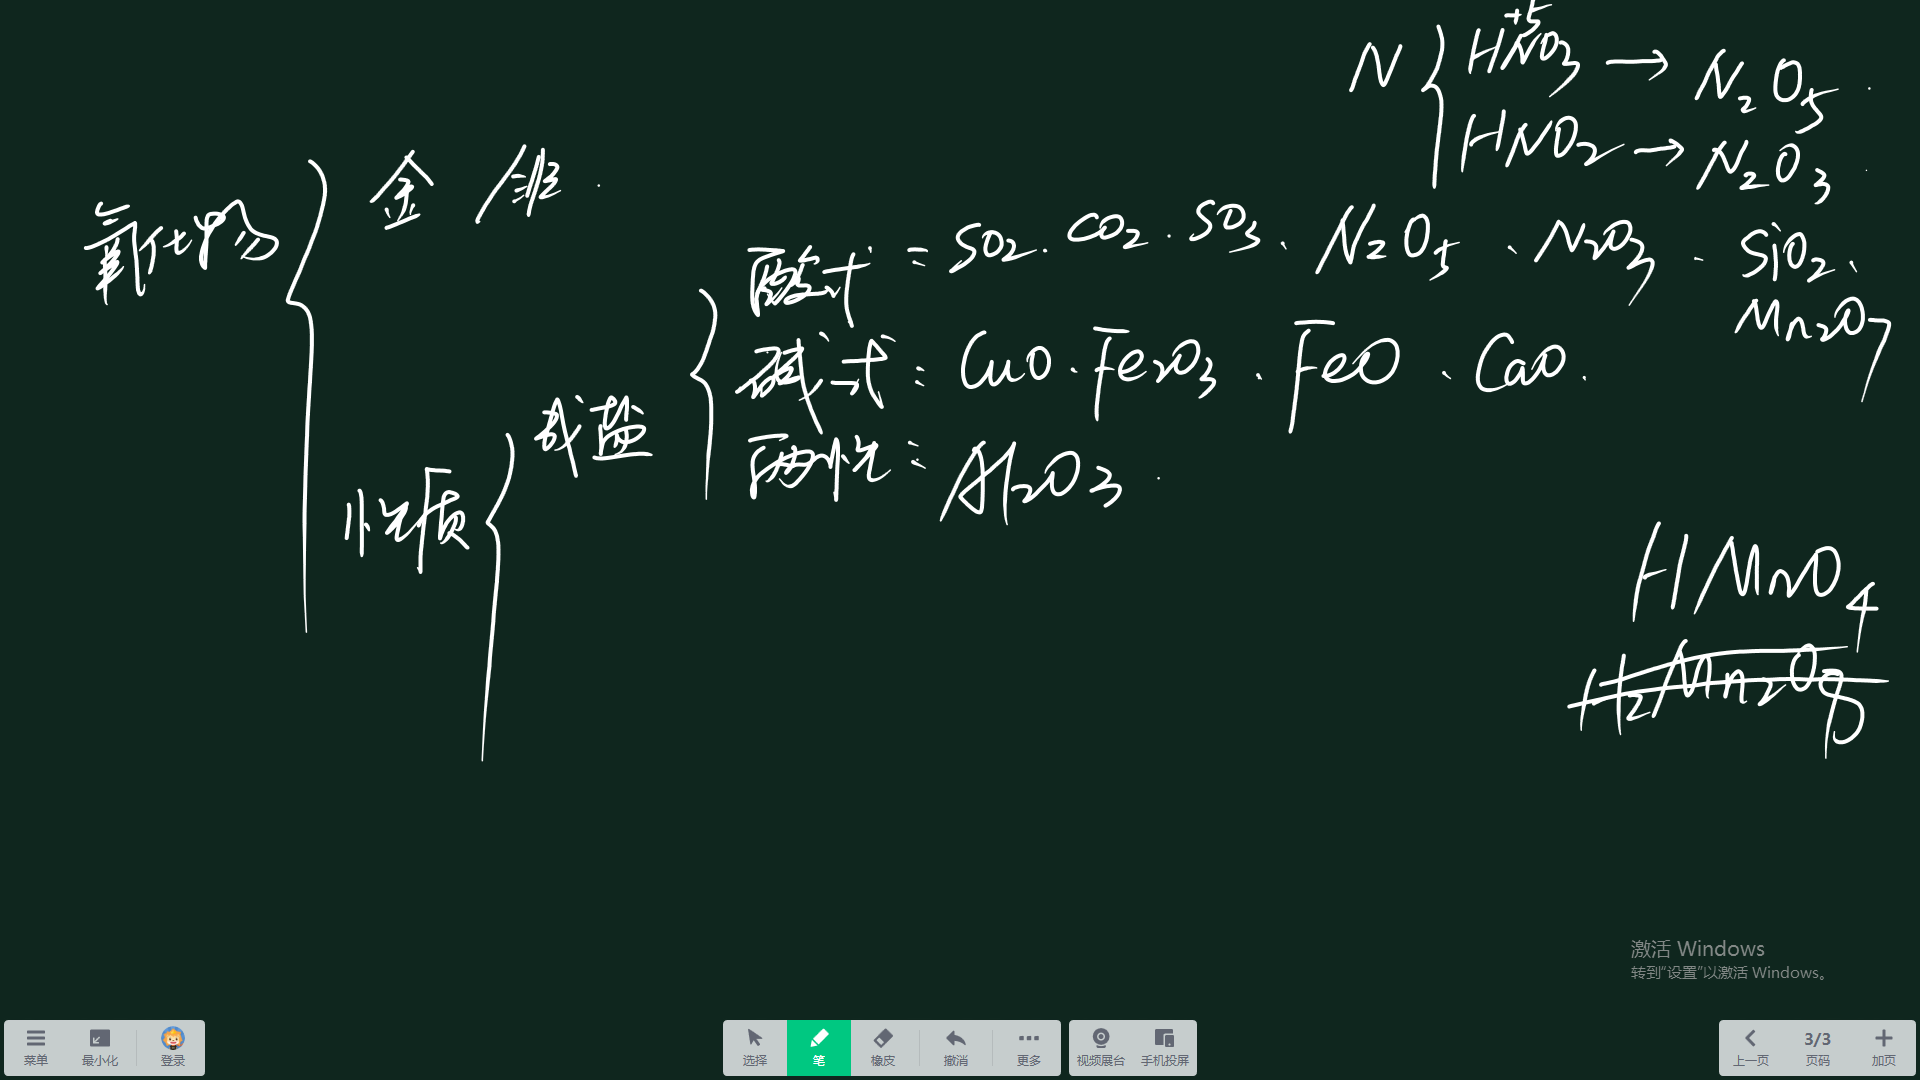 N { HNO3 → N2O5
+5
HNO2 → N2O3
氧化物 { 金 / 非
性质 { 成盐 {
酸式：SO2、CO2、SO3、N2O5、N2O3、SiO2、
Mn2O7
碱式：CuO、Fe2O3、FeO、CaO
两性：Al2O3
HMnO4
H2Mn2O8
激活 Windows
转到“设置”以激活 Windows。
菜单 最小化 登录 选择 笔 橡皮 撤消 更多 视频展台 手机投屏 上一页 3/3 页码 加页